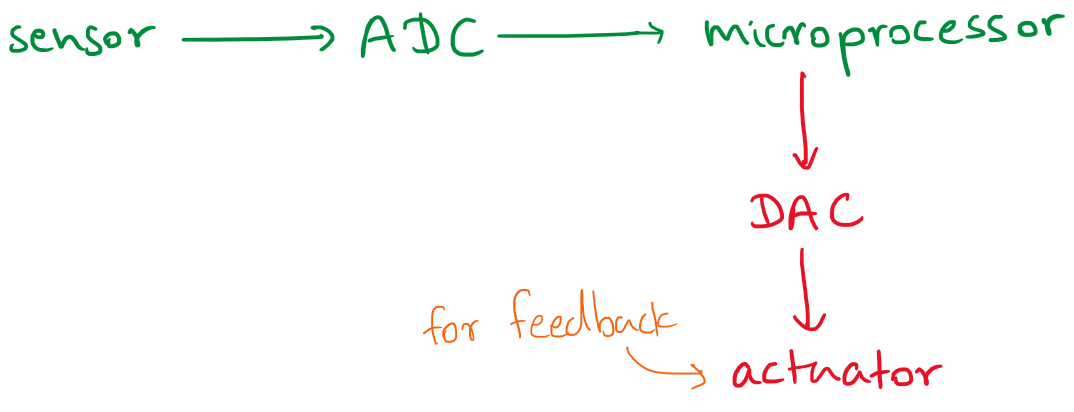 sensor ADC microprocessor
DAC
for feedback
actuator